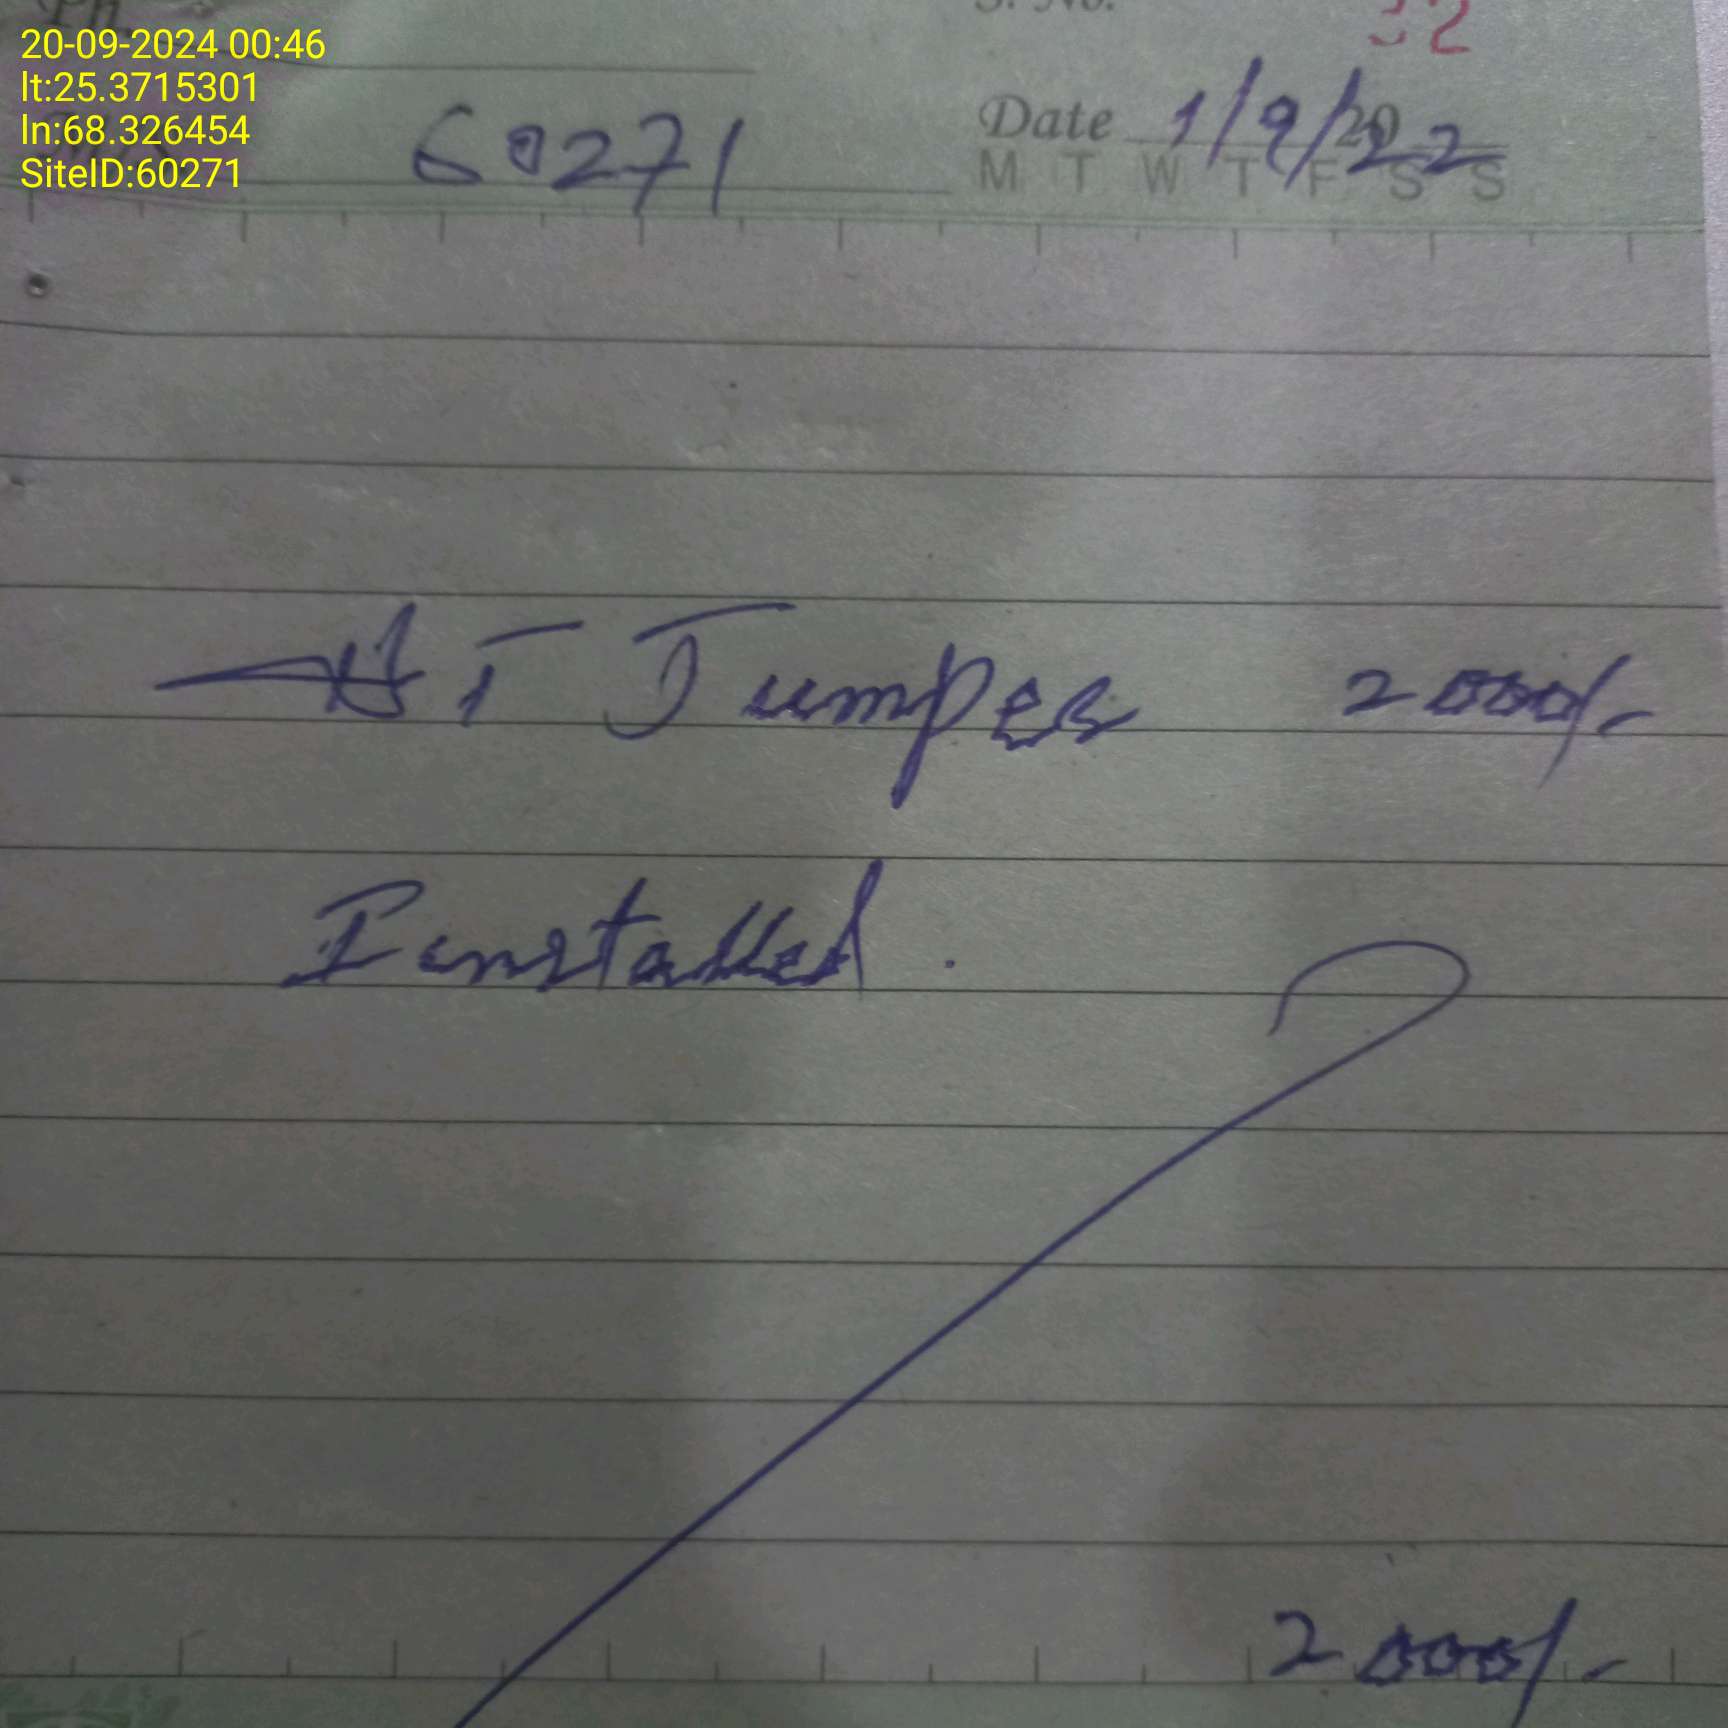 Ph
S. No. 32
20-09-2024 00:46
lt:25.3715301
ln:68.326454
SiteID:60271
60271
Date 1/9/2022
M T W T F S S
HT Jumper 2000/-
Installed.
2000/-